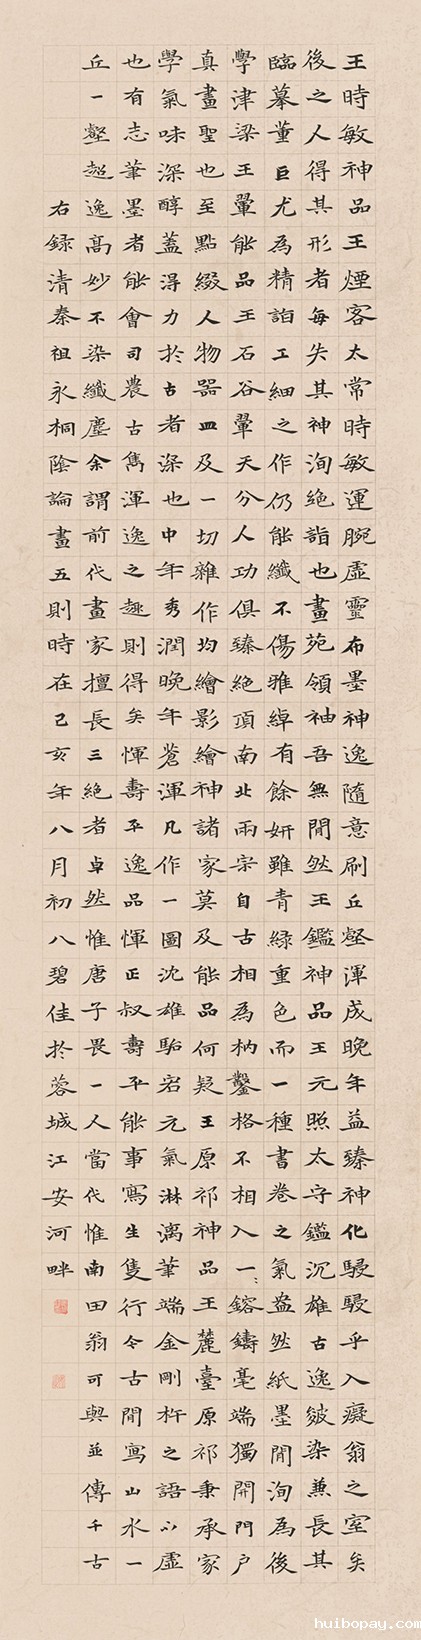 王時敏神品王煙客太常時敏運腕虛靈布墨神逸隨意刷丘壑渾成晚年益臻神化駸駸乎入癡翁之室矣
後之人得其形者每失其神洵絕詣也畫苑領袖吾無閒然王鑑神品王元照太守鑑沉雄古逸皴染兼長其
臨摹董巨尤為精詣工細之作仍能纖不傷雅綽有餘妍雖青綠重色而一種書卷之氣盎然紙墨閒洵為後
學津梁王翬能品王石谷翬天分人功俱臻絕頂南北兩宗自古相為枘鑿格不相入一一鎔鑄毫端獨開門戶
真畫聖也至點綴人物器皿及一切雜作均繪影繪神諸家莫及能品何疑王原祁神品王麓臺原祁秉承家
學氣味深醇蓋得力於古者深也中年秀潤晚年蒼渾凡作一圖沈雄駘宕元氣淋漓筆端金剛杵之語以虛
也有志筆墨者能會司農古雋渾逸之趣則得矣惲壽平逸品惲正叔壽平能事寫生隻行令古閒寫山水一
丘一壑超逸高妙不染纖塵余謂前代畫家擅長三絕者卓然惟唐子畏一人當代惟南田翁可與並傳千古
右錄清秦祖永桐陰論畫五則時在己亥年八月初八碧佳於蓉城江安河畔
huibopay.com